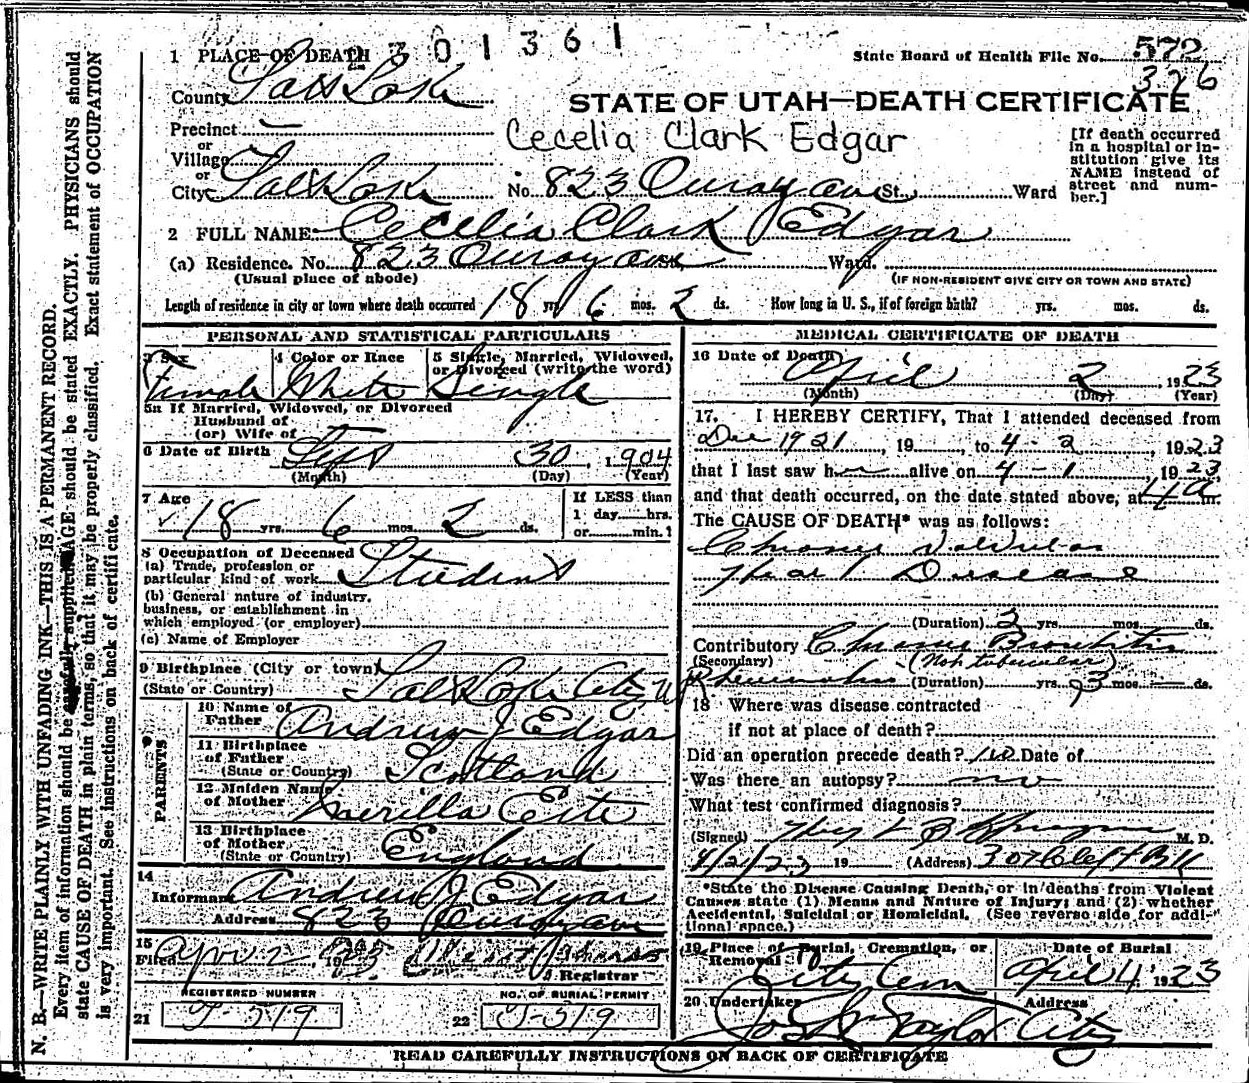 2301361
1 PLACE OF DEATH
State Board of Health File No. 572
326
County Salt Lake
STATE OF UTAH—DEATH CERTIFICATE
Precinct —
Cecelia Clark Edgar
or
Village
or
City Salt Lake No. 823 Ouray Ave St. Ward
[If death occurred in a hospital or institution give its NAME instead of street and number.]
2 FULL NAME Cecelia Clark Edgar
(a) Residence. No. 823 Ouray Ave St. Ward.
(Usual place of abode) (IF NON-RESIDENT GIVE CITY OR TOWN AND STATE)
Length of residence in city or town where death occurred 18 yrs. 6 mos. 2 ds. How long in U. S., if of foreign birth? yrs. mos. ds.
PERSONAL AND STATISTICAL PARTICULARS
3 Sex Female
4 Color or Race White
5 Single, Married, Widowed, or Divorced (write the word) Single
5a If Married, Widowed, or Divorced
Husband of
(or) Wife of
6 Date of Birth Sept 30, 1904
(Month) (Day) (Year)
7 Age 18 yrs. 6 mos. 2 ds.
If LESS than
1 day hrs.
or min.?
8 Occupation of Deceased
(a) Trade, profession or
particular kind of work Student
(b) General nature of industry,
business, or establishment in
which employed (or employer)
(c) Name of Employer
9 Birthplace (City or town)
(State or Country) Salt Lake City U
PARENTS
10 Name of
Father Andrew J Edgar
11 Birthplace
of Father
(State or Country) Scotland
12 Maiden Name
of Mother
13 Birthplace
of Mother
(State or Country) England
14
Informant Andrew J. Edgar
Address 823 Ouray ave
15
Filed Apr 2, 1923
Registrar
REGISTERED NUMBER
21 J-519
NO. OF BURIAL PERMIT
22 J-519
MEDICAL CERTIFICATE OF DEATH
16 Date of Death April 2, 1923
(Month) (Day) (Year)
17. I HEREBY CERTIFY, That I attended deceased from
Dec 1921, 19 , to 4-2 1923
that I last saw her alive on 4-1, 1923,
and that death occurred, on the date stated above, at 4 a m.
The CAUSE OF DEATH* was as follows:
Chronic Valvular
Heart Disease
(Duration) 2 yrs. mos. ds.
Contributory Chronic Bronchitis
(Secondary) (Not tubercular)
Rheumatism (Duration) yrs. 3 mos. — ds.
18 Where was disease contracted
if not at place of death?
Did an operation precede death? no Date of
Was there an autopsy? no
What test confirmed diagnosis?
(Signed) M. D.
4/2/23 19 (Address)
*State the Disease Causing Death, or in deaths from Violent
Causes state (1) Means and Nature of Injury; and (2) whether
Accidental, Suicidal or Homicidal. (See reverse side for addi-
tional space.)
19 Place of Burial, Cremation, or
Removal City Cem
Date of Burial
April 4, 1923
20 Undertaker Taylor
Address City
READ CAREFULLY INSTRUCTIONS ON BACK OF CERTIFICATE
N. B.—WRITE PLAINLY WITH UNFADING INK—THIS IS A PERMANENT RECORD.
Every item of information should be carefully supplied. AGE should be stated EXACTLY. PHYSICIANS should
state CAUSE OF DEATH in plain terms, so that it may be properly classified. Exact statement of OCCUPATION
is very important. See instructions on back of certificate.